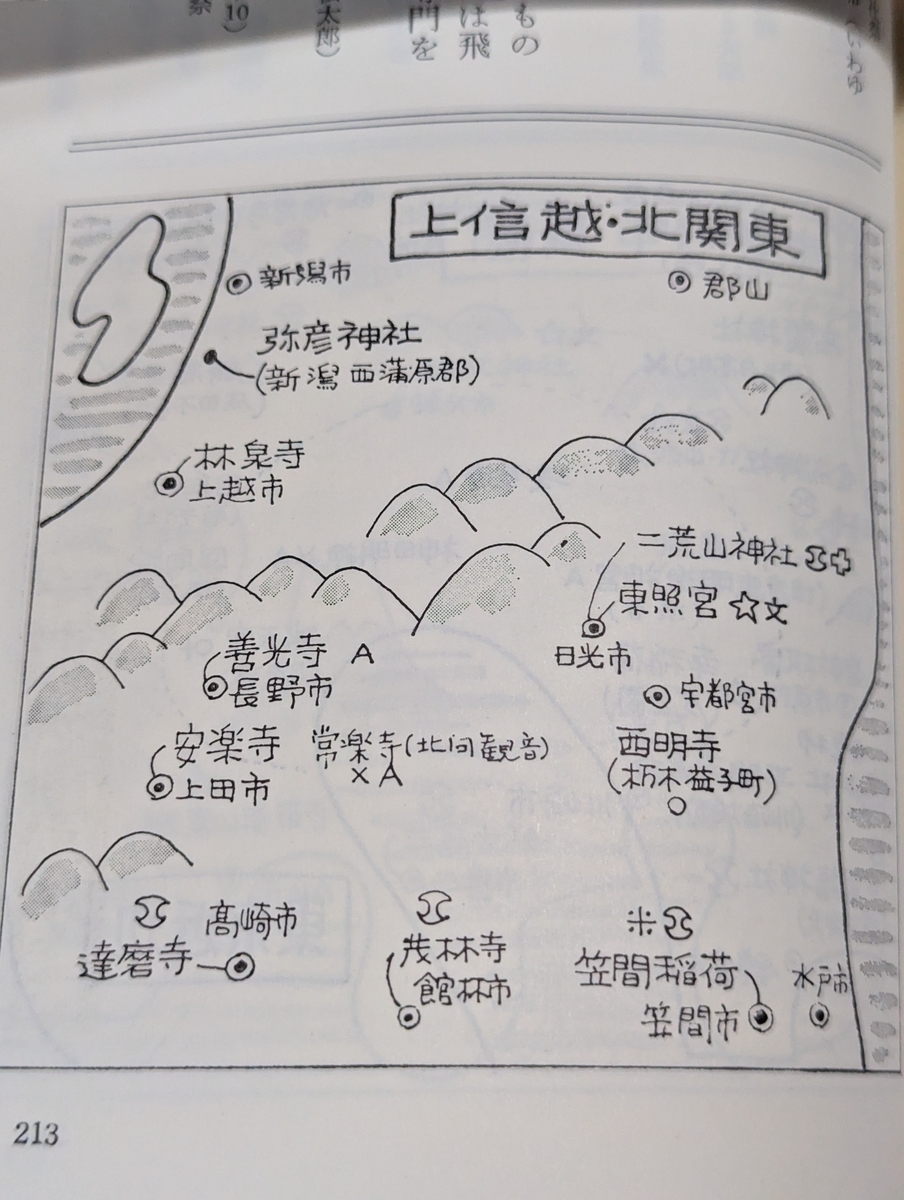 もの
は飛
門を
太郎)
10)
祭
いわゆ
上信越・北関東
新潟市
郡山
弥彦神社
(新潟 西蒲原郡)
林泉寺
上越市
二荒山神社
東照宮 ☆文
日光市
善光寺 A
長野市
宇都宮市
安楽寺
上田市
常楽寺(北向観音)
× A
西明寺
(栃木 益子町)
○
高崎市
達磨寺
茂林寺
館林市
米
笠間稲荷
笠間市
水戸市
213